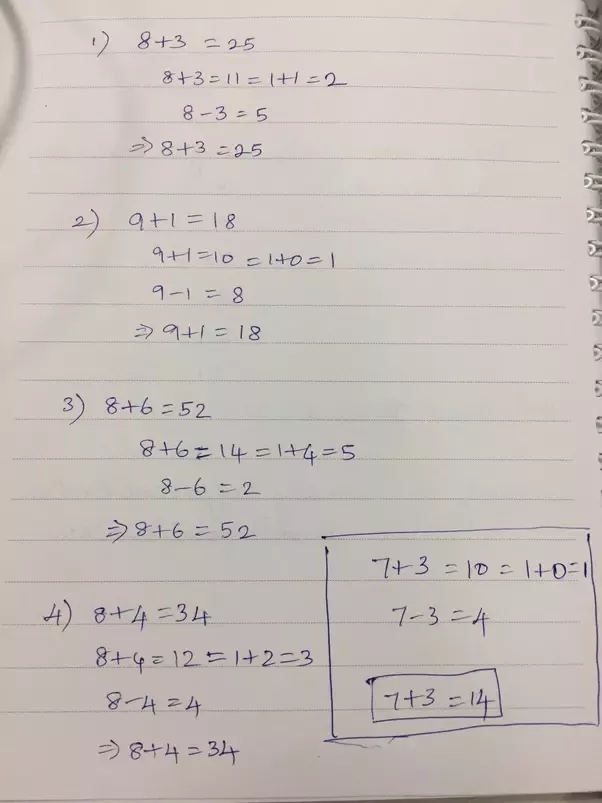 1) 8+3 = 25
8+3 = 11 = 1+1 = 2
8-3 = 5
⇒ 8+3 = 25
2) 9+1 = 18
9+1 = 10 = 1+0 = 1
9-1 = 8
⇒ 9+1 = 18
3) 8+6 = 52
8+6 = 14 = 1+4 = 5
8-6 = 2
⇒ 8+6 = 52
4) 8+4 = 34
8+4 = 12 = 1+2 = 3
8-4 = 4
⇒ 8+4 = 34
7+3 = 10 = 1+0=1
7-3 = 4
7+3 = 14